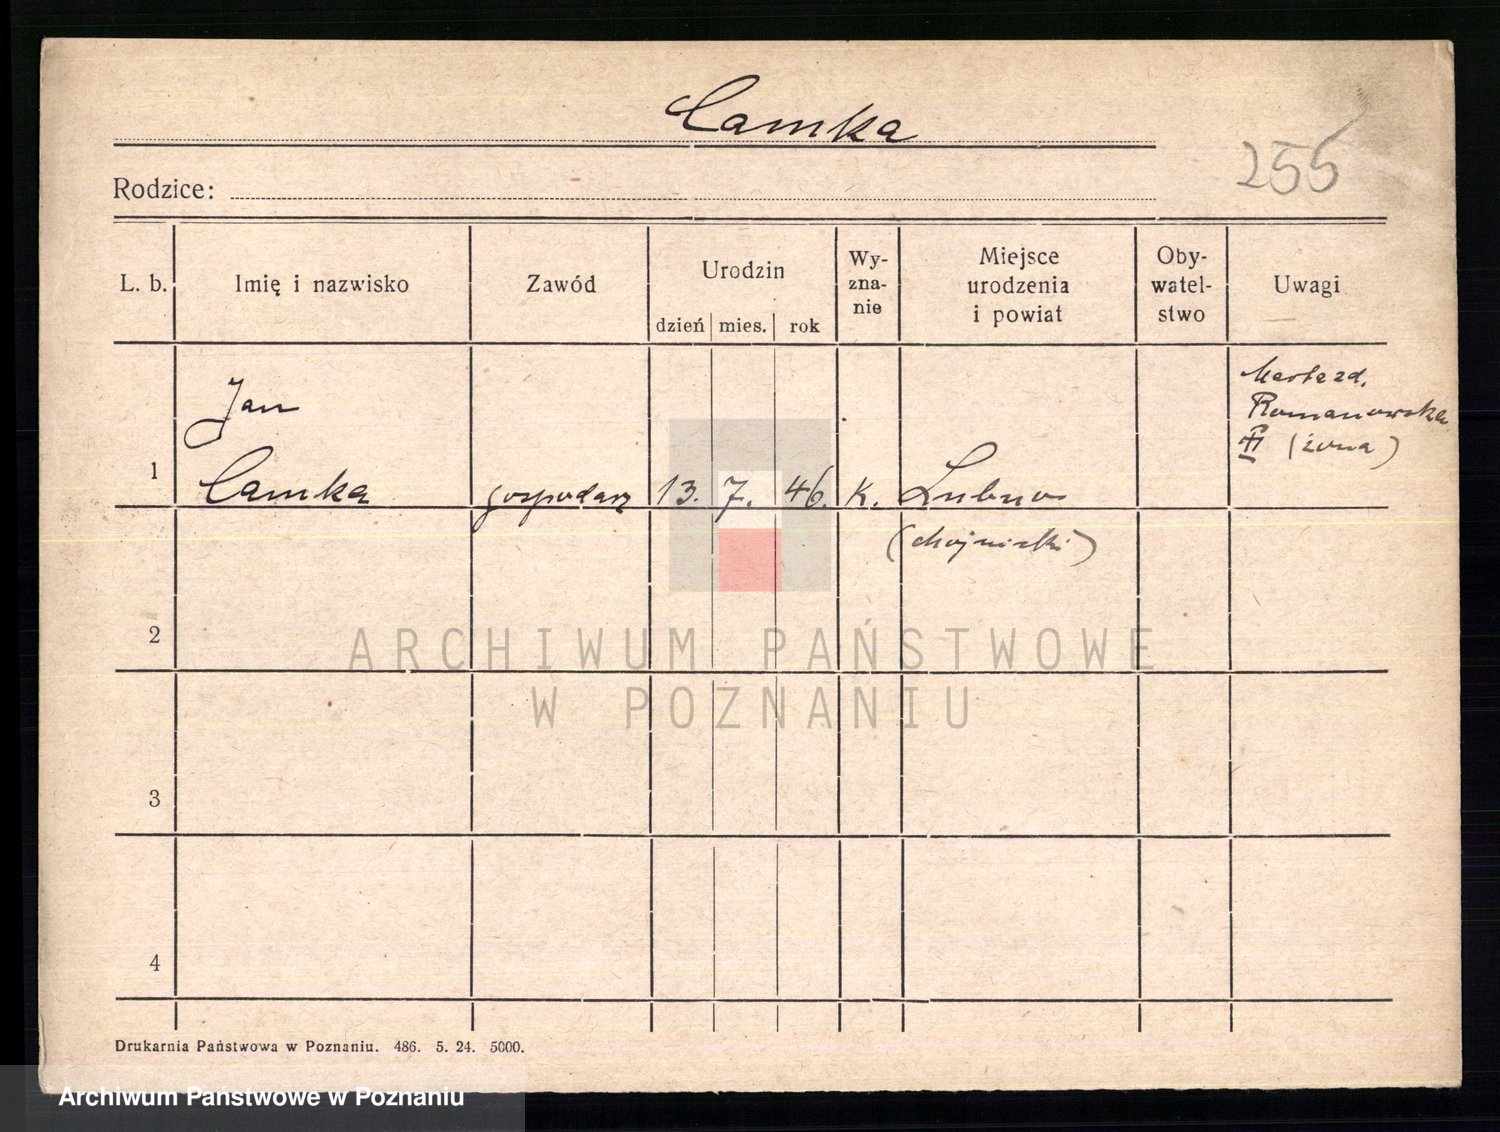 Camka
255
Rodzice:
L. b.
Imię i nazwisko
Zawód
Urodzin
dzień
mies.
rok
Wy-
zna-
nie
Miejsce
urodzenia
i powiat
Oby-
watel-
stwo
Uwagi
1
Jan
Camka
gospodarz
13.
7.
46.
k.
Lubno
(chojnicki)
zd.
Romanowska
(żona)
2
3
4
ARCHIWUM PAŃSTWOWE
W POZNANIU
Drukarnia Państwowa w Poznaniu. 486. 5. 24. 5000.
Archiwum Państwowe w Poznaniu